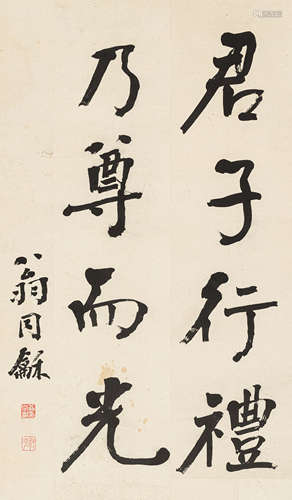 君子行禮
乃尊而光
翁同龢